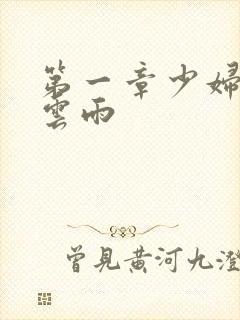 第一章少婦
雲雨
曾見黃河九澄